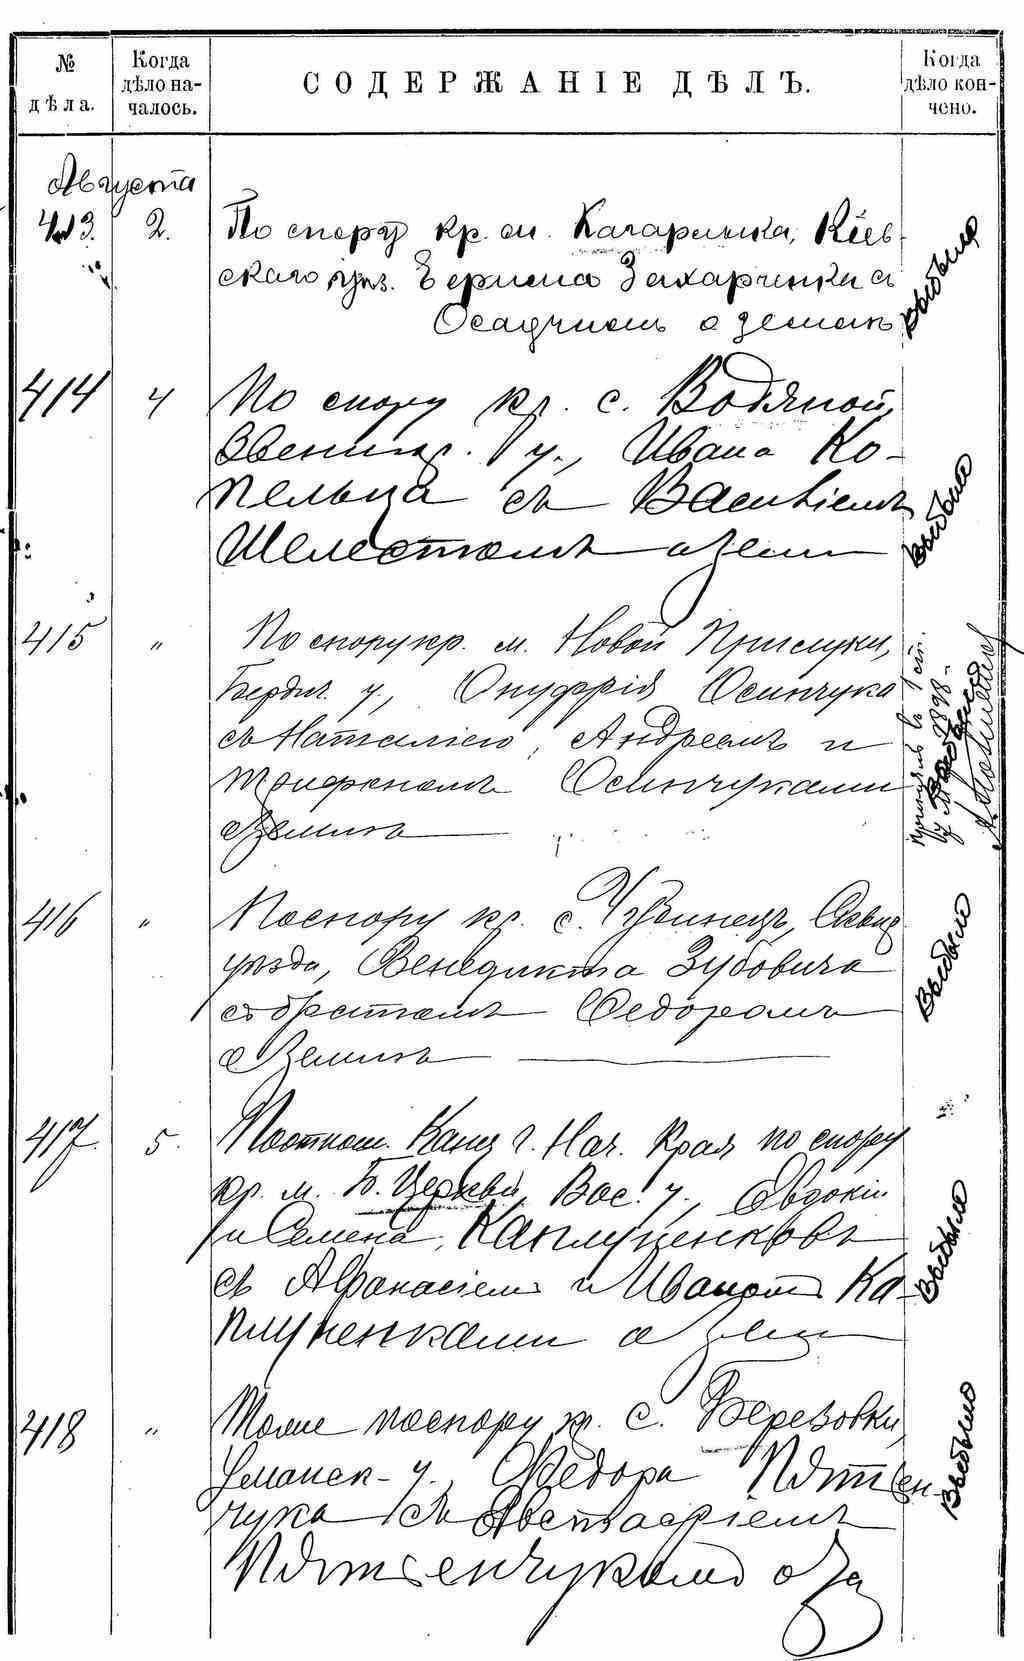 № дѣла.
Когда дѣло на-
чалось.
СОДЕРЖАНІЕ ДѢЛЪ.
Когда дѣло кон-
чено.
Августа
413. 2. По спору кр. м. Кагарлыка, Кіев-
скаго уѣз. Захарченки съ
Осадчимъ о землѣ
выбыло
414 4 По спору кр. с. Водяной,
Звенигр. у., Ивана Ко-
пельца съ Василіемъ
Шелестомъ о земл
выбыло
415 " По спору кр. м. Новой Прилуки,
Бердич. у., Онуфрія Осинчука
съ Наталіею, Андреемъ и
Трифономъ Осинчуками
о землѣ
выбыло
1898
416 " По спору кр. с. Чубинецъ, Сквир.
уѣзда, Венедикта Зубовича
съ братомъ Федоромъ
о землѣ
Выбыло
417. 5. По отнош. Канц. Г. Нач. Края по спору
кр. м. Б. Церкви, Вас. у., Евдокіи
и Семена, Каплуненковъ
съ Афанасіемъ и Иваномъ Ка-
плуненками о земл
Выбыло
418 " Тоже по спору кр. с. Березовки,
Уманск. у., Федора Пятен-
чука съ Евстафіемъ
Пятенчукомъ о
Выбыло